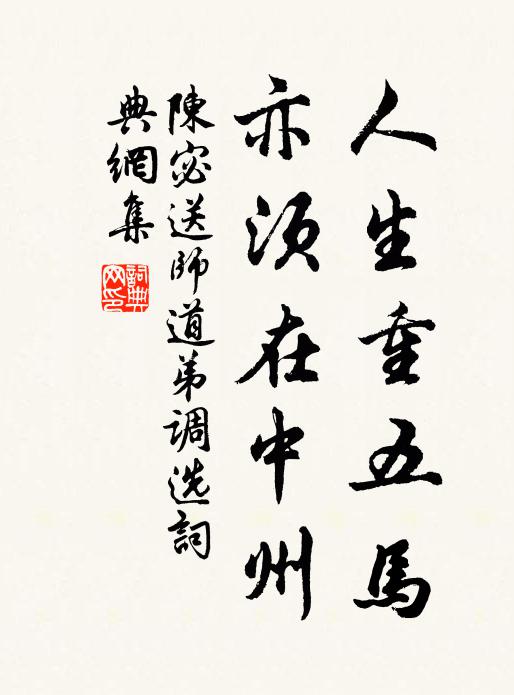 人生重五馬
亦須在中州
陳宓送師道弟調选詞
典網集
詞典网印